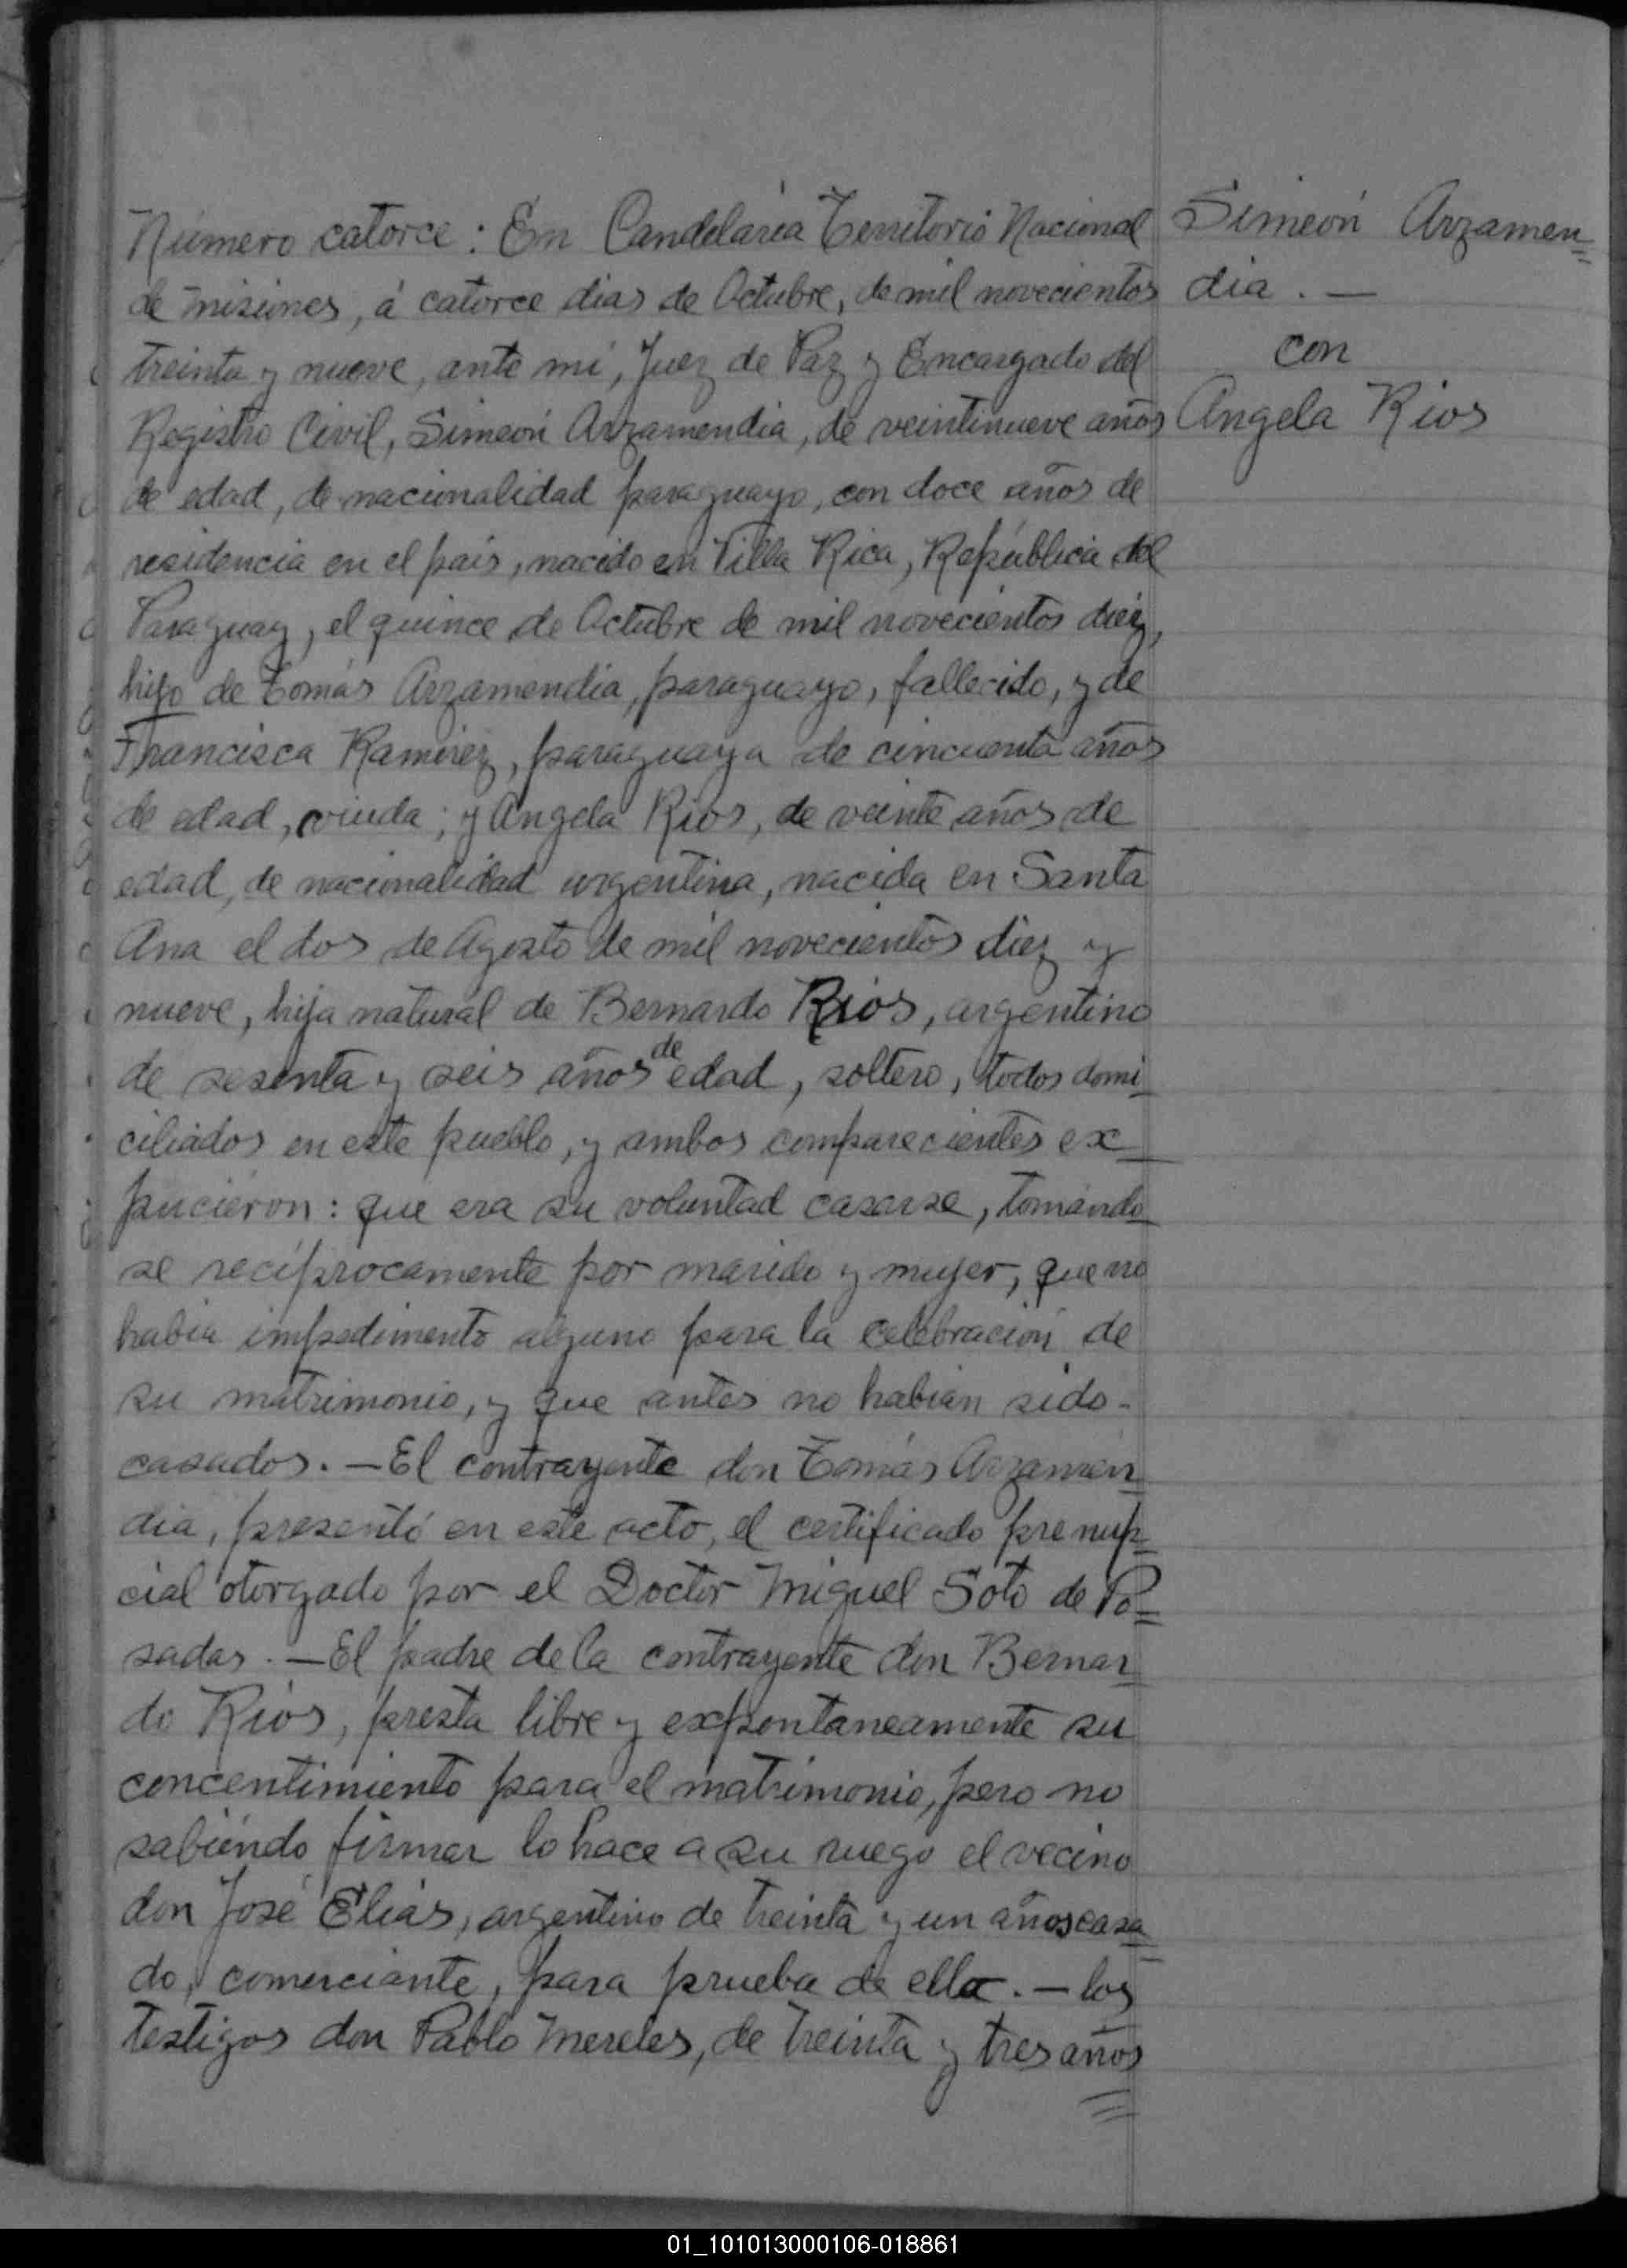 Número catorce: En Candelaria Territorio Nacional
de Misiones, á catorce dias de Octubre, de mil novecientos
treinta y nueve, ante mí, Juez de Paz y Encargado del
Registro Civil, Simeón Arzamendia, de veintinueve años
de edad, de nacionalidad paraguayo, con doce años de
residencia en el país, nacido en Villa Rica, República del
Paraguay, el quince de Octubre de mil novecientos diez,
hijo de Tomás Arzamendia, paraguayo, fallecido, y de
Francisca Ramirez, paraguaya de cincuenta años
de edad, viuda; y Angela Rios, de veinte años de
edad, de nacionalidad argentina, nacida en Santa
Ana el dos de Agosto de mil novecientos diez y
nueve, hija natural de Bernardo Rios, argentino
de sesenta y seis años de edad, soltero, todos domi-
ciliados en este pueblo, y ambos comparecientes ex-
pucieron: que era su voluntad casarse, tomándo-
se recíprocamente por marido y mujer, que no
habia impedimento alguno para la celebración de
su matrimonio, y que antes no habian sido-
casados. — El contrayente don Tomás Arzamen=
dia, presentó en este acto, el certificado prenup=
cial otorgado por el Doctor Miguel Soto de Po=
sadas. — El padre de la contrayente don Bernar=
do Rios, presta libre y expontaneamente su
concentimiento para el matrimonio, pero no
sabiéndo firmar lo hace a su ruego el vecino
don José Elias, argentino de treinta y un años casa=
do, comerciante, para prueba de ella. — los
testigos don Pablo Mereles, de treinta y tres años
Simeón Arzamen=
dia. —
con
Angela Rios
01_101013000106-018861